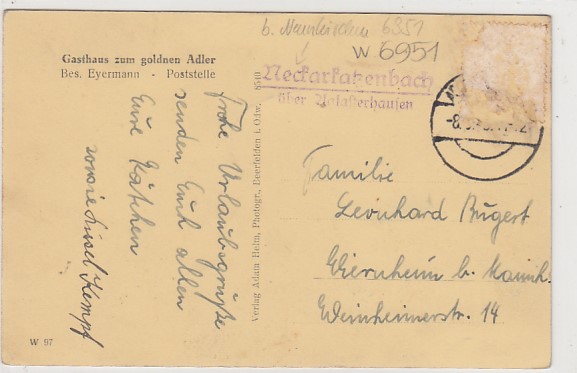 Gasthaus zum goldnen Adler
Bes. Eyermann - Poststelle
Frohe Urlaubsgrüße
senden Euch allen
Eure Kätchen
sowie Liesel Kempf
W 97
Verlag Adam Helm, Photogr., Beerfelden i. Odw. 8540
b. 6951
W 6951
Neckarkatzenbach
über Aglasterhausen
Familie
Leonhard Bugert
Viernheim b. Mannh.
Weinheimerstr. 14